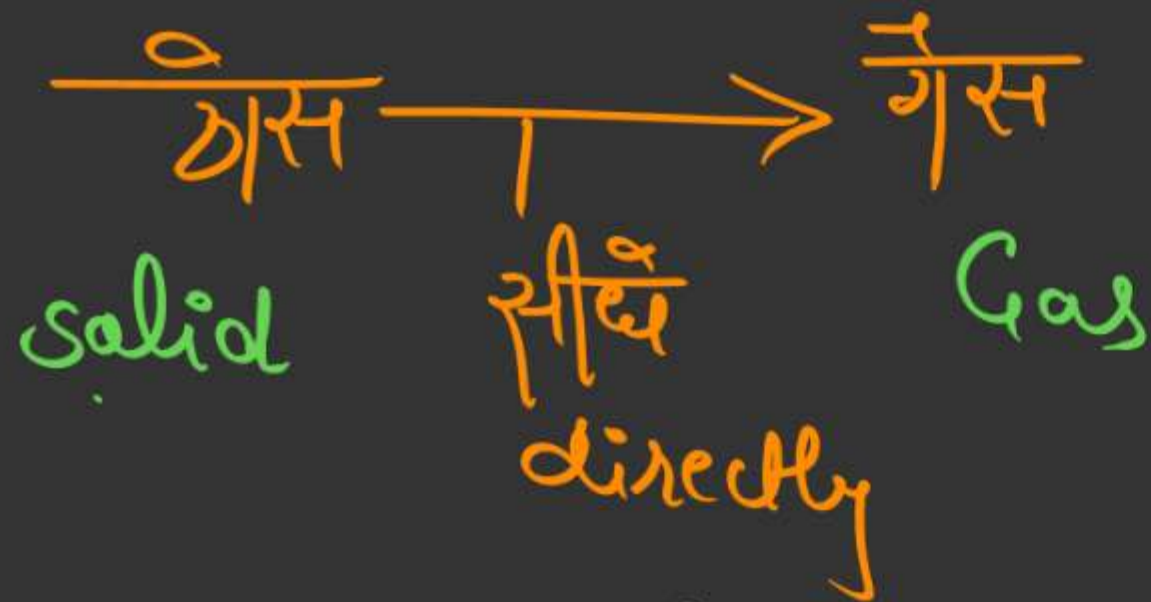 ठोस → गैस
solid Gas
सीधे
directly